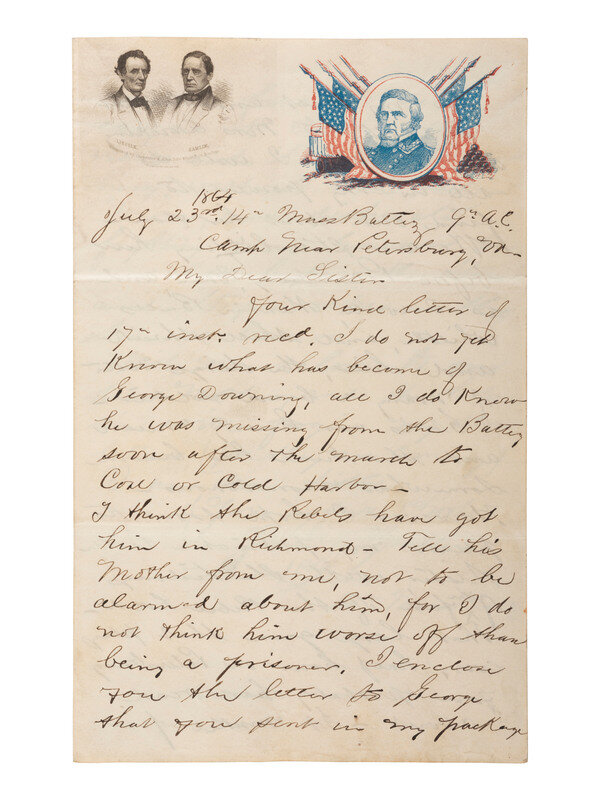 LINCOLN. HAMLIN.
1864
July 23rd. 14th Mass Battery 9th A.C.
Camp Near Petersburg, Va
My Dear Sister
Your Kind letter of
17th inst. recd. I do not yet
Know what has become of
George Downing, all I do Know
he was missing from the Battery
soon after the march to
Coal or Cold Harbor-
I think the Rebels have got
him in Richmond - Tell his
Mother from me, not to be
alarmed about him, for I do
not think him worse off than
being a prisoner. I enclose
you the letter to George
that you sent in my package